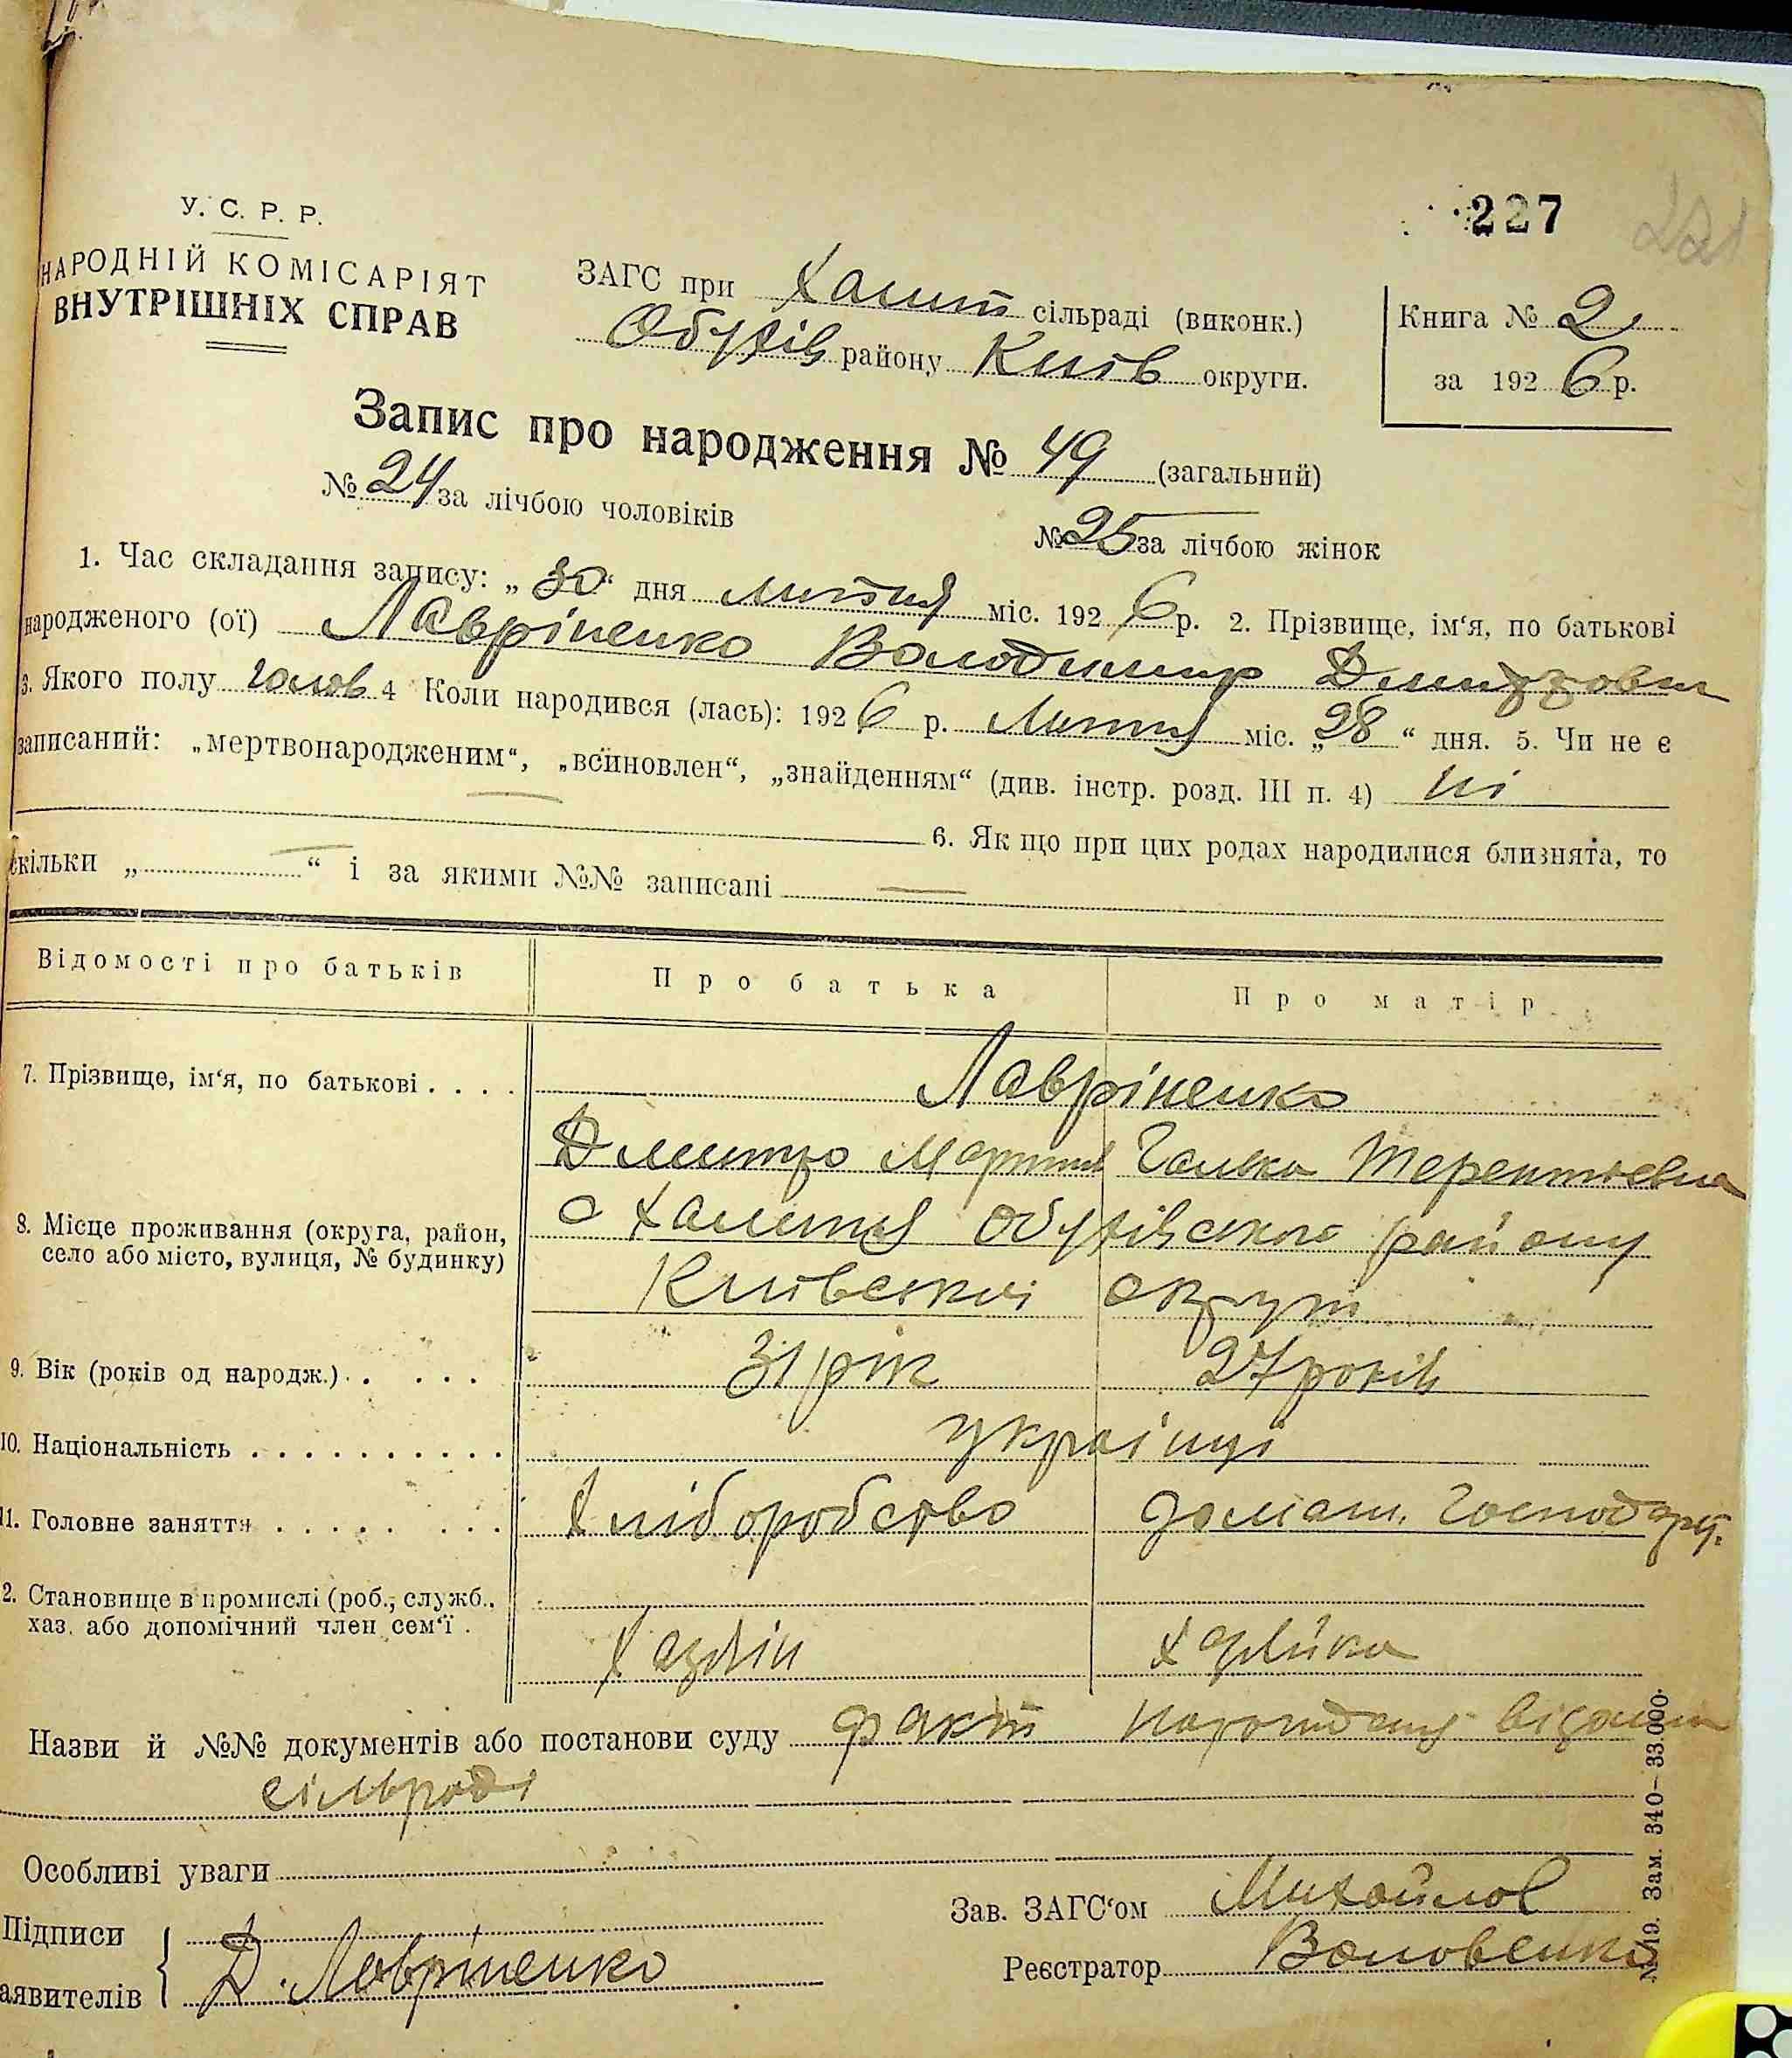 227
221
У. С. Р. Р.
НАРОДНІЙ КОМІСАРІЯТ
ВНУТРІШНІХ СПРАВ
ЗАГС при Халеп сільраді (виконк.)
Обухів району Київ округи.
Книга № 2
за 1926 р.
Запис про народження № 49 (загальний)
№ 24 за лічбою чоловіків
№ 25 за лічбою жінок
1. Час складання запису: „30“ дня липня міс. 1926 р. 2. Прізвище, ім‘я, по батькові
народженого (ої) Лавріненко Володимир Дмитрович
3. Якого полу чолов 4 Коли народився (лась): 1926 р. Липня міс. „28“ дня. 5. Чи не є
записаний: „мертвонародженим“, „всиновлен“, „знайденням“ (див. інстр. розд. III п. 4) ні
6. Як що при цих родах народилися близнята, то
скільки „ “ і за якими №№ записані
Відомості про батьків Про батька Про матір
7. Прізвище, ім‘я, по батькові Лавріненко
Дмитро Мартин Галька Терентіевна
8. Місце проживання (округа, район, с Халепя Обухівського району
село або місто, вулиця, № будинку) Київської округи
9. Вік (років од народж.) 31 рік 27 років
10. Національність українці
11. Головне заняття Хліборобство домаш. господар.
2. Становище в промислі (роб., служб.,
хаз. або допомічний член сем‘ї Хазяїн Хазяйка
Назви й №№ документів або постанови суду факт народжену відомий
сільраді
Особливі уваги
Зав. ЗАГС‘ом Михайлов
Підписи
аявителів Д. Лавріненко
Реєстратор Воловенко
№ 19. Зам. 340–33.000.